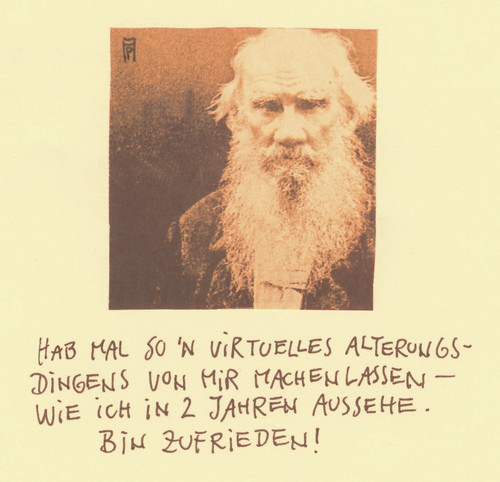 HAB MAL SO 'N VIRTUELLES ALTERUNGS-
DINGENS VON MIR MACHEN LASSEN –
WIE ICH IN 2 JAHREN AUSSEHE.
BIN ZUFRIEDEN!